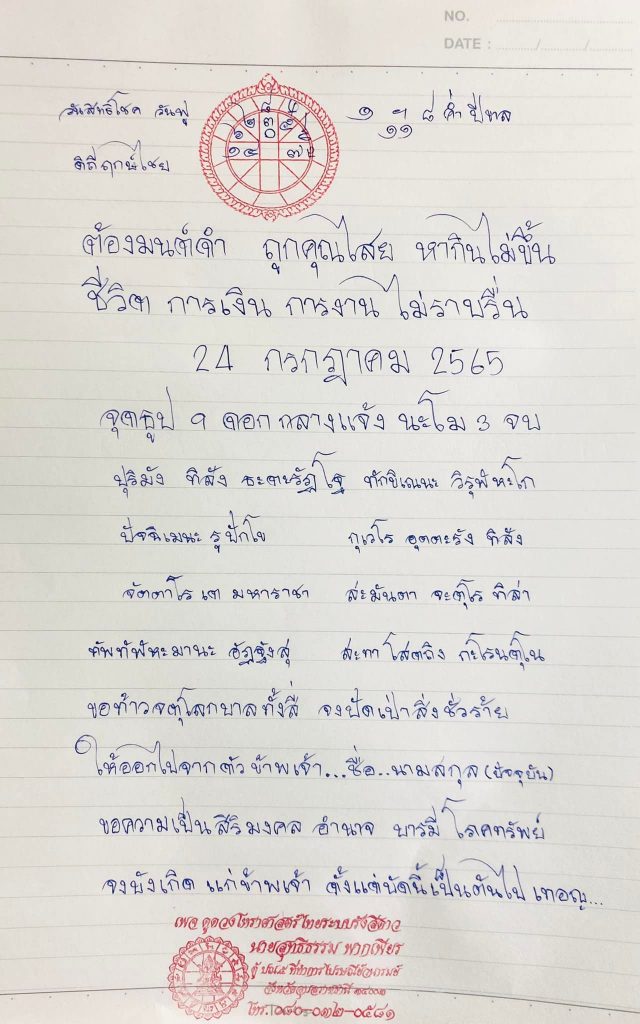 NO.
DATE : / /
วันสิทธิโชค วันฟู
๑ ฯ ๘ ค่ำ ปีขาล
๑๑
ดิถีฤกษ์ไชย
ต้องมนต์ดำ ถูกคุณไสย หากินไม่ขึ้น
ชีวิต การเงิน การงาน ไม่ราบรื่น
24 กรกฎาคม 2565
จุดธูป ๑ ดอก กลางแจ้ง นะโม 3 จบ
ปุริมัง ทิสัง ธะตะรัฏโฐ ทักขิเณนะ วิรุฬหะโก
ปัจฉิเมนะ รูปักโข กุเวโร อุตตะรัง ทิสัง
จัตตาโร เต มหาราชา สะมันตา จะตุโร ทิสา
ทัพทัฬหะมานะ อัฏฐังสุ สะทา โสตถิง กะโรนตุโน
ขอท้าวจตุโลกบาลทั้งสี่ จงปัดเป่าสิ่งชั่วร้าย
ให้ออกไปจากตัวข้าพเจ้า...ชื่อ..นามสกุล (ปัจจุบัน)
ขอความเป็นสิริมงคล อำนาจ บารมี โภคทรัพย์
จงบังเกิด แก่ข้าพเจ้า ตั้งแต่บัดนี้เป็นต้นไป เทอญ...
เพจ ดูดวงโหราศาสตร์ไทยระบบรังสีดาว
นายสุทธิธรรม พากเพียร
ตู้ ปณ.๕ ที่ทำการไปรษณีย์
จังหวัดอุบลราชธานี ๓๔๐๐๐
โทร. ๐๘๐-๐๓๒-๐๕๘๑